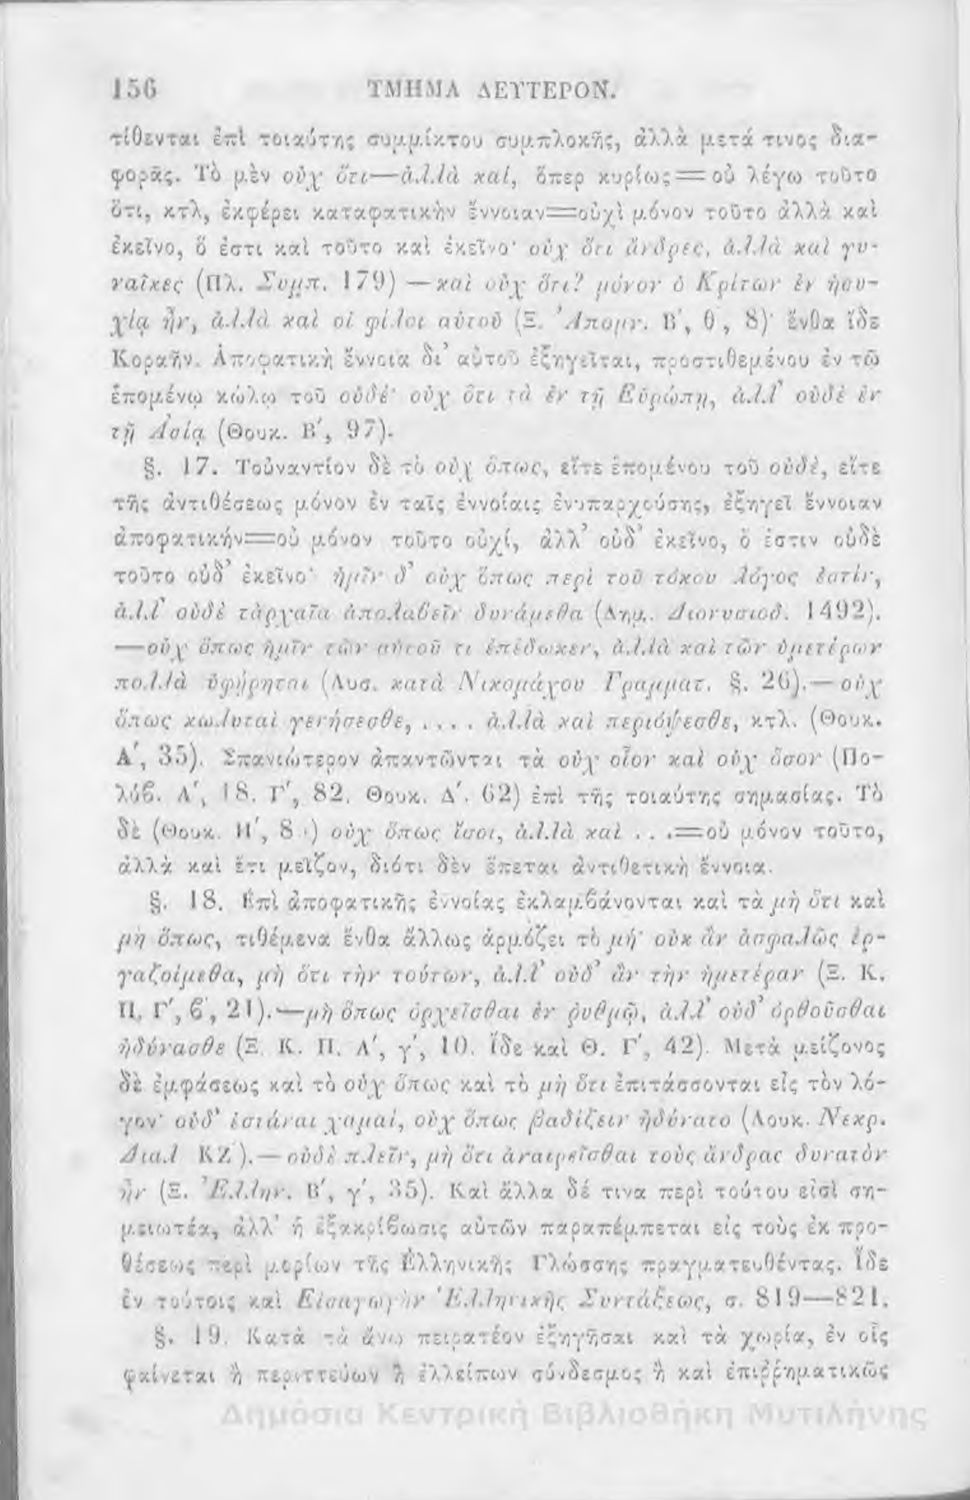 156 ΤΜΗΜΑ ΔΕΥΤΕΡΟΝ.
τίθενται ἐπὶ τοιαύτης συμμίκτου συμπλοκῆς, ἀλλὰ μετά τινος δια-
φορᾶς. Τὸ μὲν οὐχ ὅτι—ἀλλὰ καί, ὅπερ κυρίως=οὐ λέγω τοῦτο
ὅτι, κτλ, ἐκφέρει καταφατικὴν ἔννοιαν=οὐχὶ μόνον τοῦτο ἀλλὰ καὶ
ἐκεῖνο, ὅ ἐστι καὶ τοῦτο καὶ ἐκεῖνο· οὐχ ὅτι ἄνδρες, ἀλλὰ καὶ γυ-
ναῖκες (Πλ. Συμπ. 179) —καὶ οὐχ ὅτι? μόνον ὁ Κρίτων ἐν ἡσυ-
χίᾳ ἦν, ἀλλὰ καὶ οἱ φίλοι αὐτοῦ (Ξ. Ἀπομν. Β', θ', 8)· ἔνθα ἴδε
Κοραῆν. Ἀποφατικὴ ἔννοια δι' αὐτοῦ ἐξηγεῖται, προστιθεμένου ἐν τῷ
ἑπομένῳ κώλῳ τοῦ οὐδέ· οὐχ ὅτι τὰ ἐν τῇ Εὐρώπῃ, ἀλλ' οὐδὲ ἐν
τῇ Ἀσίᾳ (Θουκ. Β', 97).
§. 17. Τοὐναντίον δὲ τὸ οὐχ ὅπως, εἴτε ἑπομένου τοῦ οὐδέ, εἴτε
τῆς ἀντιθέσεως μόνον ἐν ταῖς ἐννοίαις ἐνυπαρχούσης, ἐξηγεῖ ἔννοιαν
ἀποφατικήν=οὐ μόνον τοῦτο οὐχί, ἀλλ' οὐδ' ἐκεῖνο, ὅ ἐστιν οὐδὲ
τοῦτο οὐδ' ἐκεῖνο· ἡμῖν δ' οὐχ ὅπως περὶ τοῦ τόκου λόγος ἐστίν,
ἀλλ' οὐδὲ τἀρχαῖα ἀπολαβεῖν δυνάμεθα (Δημ. Διονυσιοδ. 1492).
—οὐχ ὅπως ἡμῖν τῶν αὑτοῦ τι ἐπέδωκεν, ἀλλὰ καὶ τῶν ὑμετέρων
πολλὰ ὑφῄρηται (Λυσ. κατὰ Νικομάχου Γραμματ. §. 26).—οὐχ
ὅπως κωλυταὶ γενήσεσθε, .... ἀλλὰ καὶ περιόψεσθε, κτλ. (Θουκ.
Α', 35). Σπανιώτερον ἀπαντῶνται τὰ οὐχ οἷον καὶ οὐχ ὅσον (Πο-
λύβ. Α', 18. Γ', 82. Θουκ. Δ'. 62) ἐπὶ τῆς τοιαύτης σημασίας. Τὸ
δὲ (Θουκ. Η', 8 ) οὐχ ὅπως ἴσοι, ἀλλὰ καὶ . . .=οὐ μόνον τοῦτο,
ἀλλὰ καὶ ἔτι μεῖζον, διότι δὲν ἕπεται ἀντιθετικὴ ἔννοια.
§. 18. Ἐπὶ ἀποφατικῆς ἐννοίας ἐκλαμβάνονται καὶ τὰ μὴ ὅτι καὶ
μὴ ὅπως, τιθέμενα ἔνθα ἄλλως ἁρμόζει τὸ μή· οὐκ ἂν ἀσφαλῶς ἐρ-
γαζοίμεθα, μὴ ὅτι τὴν τούτων, ἀλλ' οὐδ' ἂν τὴν ἡμετέραν (Ξ. Κ.
Π. Γ', β', 21).—μὴ ὅπως ὀρχεῖσθαι ἐν ῥυθμῷ, ἀλλ' οὐδ' ὀρθοῦσθαι
ἠδύνασθε (Ξ. Κ. Π. Α', γ', 10. ἴδε καὶ Θ. Γ', 42). Μετὰ μείζονος
δὲ ἐμφάσεως καὶ τὸ οὐχ ὅπως καὶ τὸ μὴ ὅτι ἐπιτάσσονται εἰς τὸν λό-
γον· οὐδ' ἑστάναι χαμαί, οὐχ ὅπως βαδίζειν ἠδύνατο (Λουκ. Νεκρ.
Διαλ ΚΖ').—οὐδὲ πλεῖν, μὴ ὅτι ἀναιρεῖσθαι τοὺς ἄνδρας δυνατὸν
ἦν (Ξ. Ἑλλην. Β', γ', 35). Καὶ ἄλλα δέ τινα περὶ τούτου εἰσὶ ση-
μειωτέα, ἀλλ' ἡ ἐξακρίβωσις αὐτῶν παραπέμπεται εἰς τοὺς ἐκ προ-
θέσεως περὶ μορίων τῆς Ἑλληνικῆς Γλώσσης πραγματευθέντας. Ἴδε
ἐν τούτοις καὶ Εἰσαγωγὴν Ἑλληνικῆς Συντάξεως, σ. 819—821.
§. 19. Κατὰ τὰ ἄνω πειρατέον ἐξηγῆσαι καὶ τὰ χωρία, ἐν οἷς
φαίνεται ἢ περιττεύων ἢ ἐλλείπων σύνδεσμος ἢ καὶ ἐπιῤῥηματικῶς
Δημόσια Κεντρική Βιβλιοθήκη Μυτιλήνης